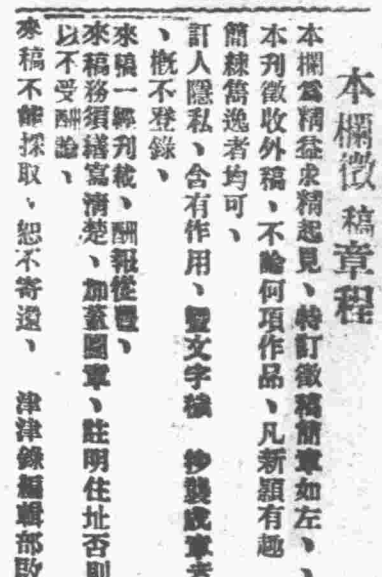 本欄徵稿章程
本欄爲精益求精起見、特訂徵稿簡章如左、
本刊徵收外稿、不論何項作品、凡新穎有趣
簡練雋逸者均可、
訐人隱私、含有作用、暨文字穢 抄襲成章者
、概不登錄、
來稿一經刊載、酬報從豐、
來稿務須繕寫清楚、加蓋圖章、註明住址否則
以不受酬論、
來稿不能採取、恕不寄還、 津津錄編輯部啟